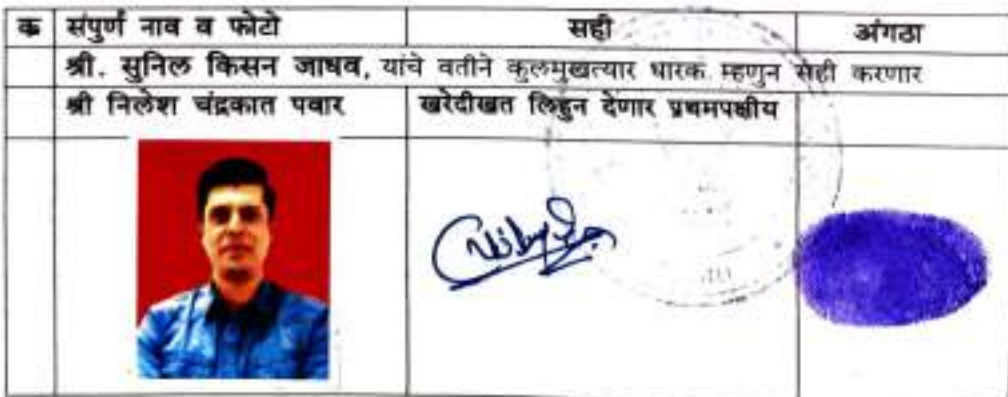 क संपुर्ण नाव व फोटो सही अंगठा
श्री. सुनिल किसन जाधव, यांचे वतीने कुलमुखत्यार धारक म्हणुन सही करणार
श्री निलेश चंद्रकात पवार खरेदीखत लिहुन देणार प्रथमपक्षीय